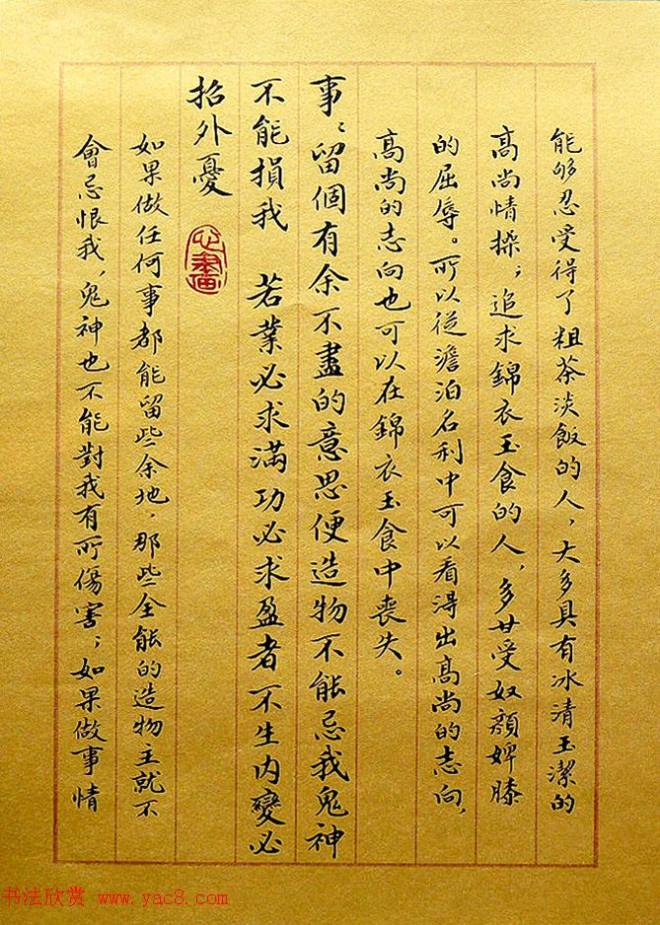 能够忍受得了粗茶淡飯的人，大多具有冰清玉潔的
高尚情操；追求錦衣玉食的人，多甘受奴顔婢膝
的屈辱。所以從澹泊名利中可以看得出高尚的志向，
高尚的志向也可以在錦衣玉食中喪失。
事：留個有余不盡的意思便造物不能忌我鬼神
不能損我 若業必求滿功必求盈者不生内變必
招外憂
心畫
如果做任何事都能留些余地，那些全能的造物主就不
會忌恨我，鬼神也不能對我有所傷害；如果做事情
书法欣赏 www.yac8.com